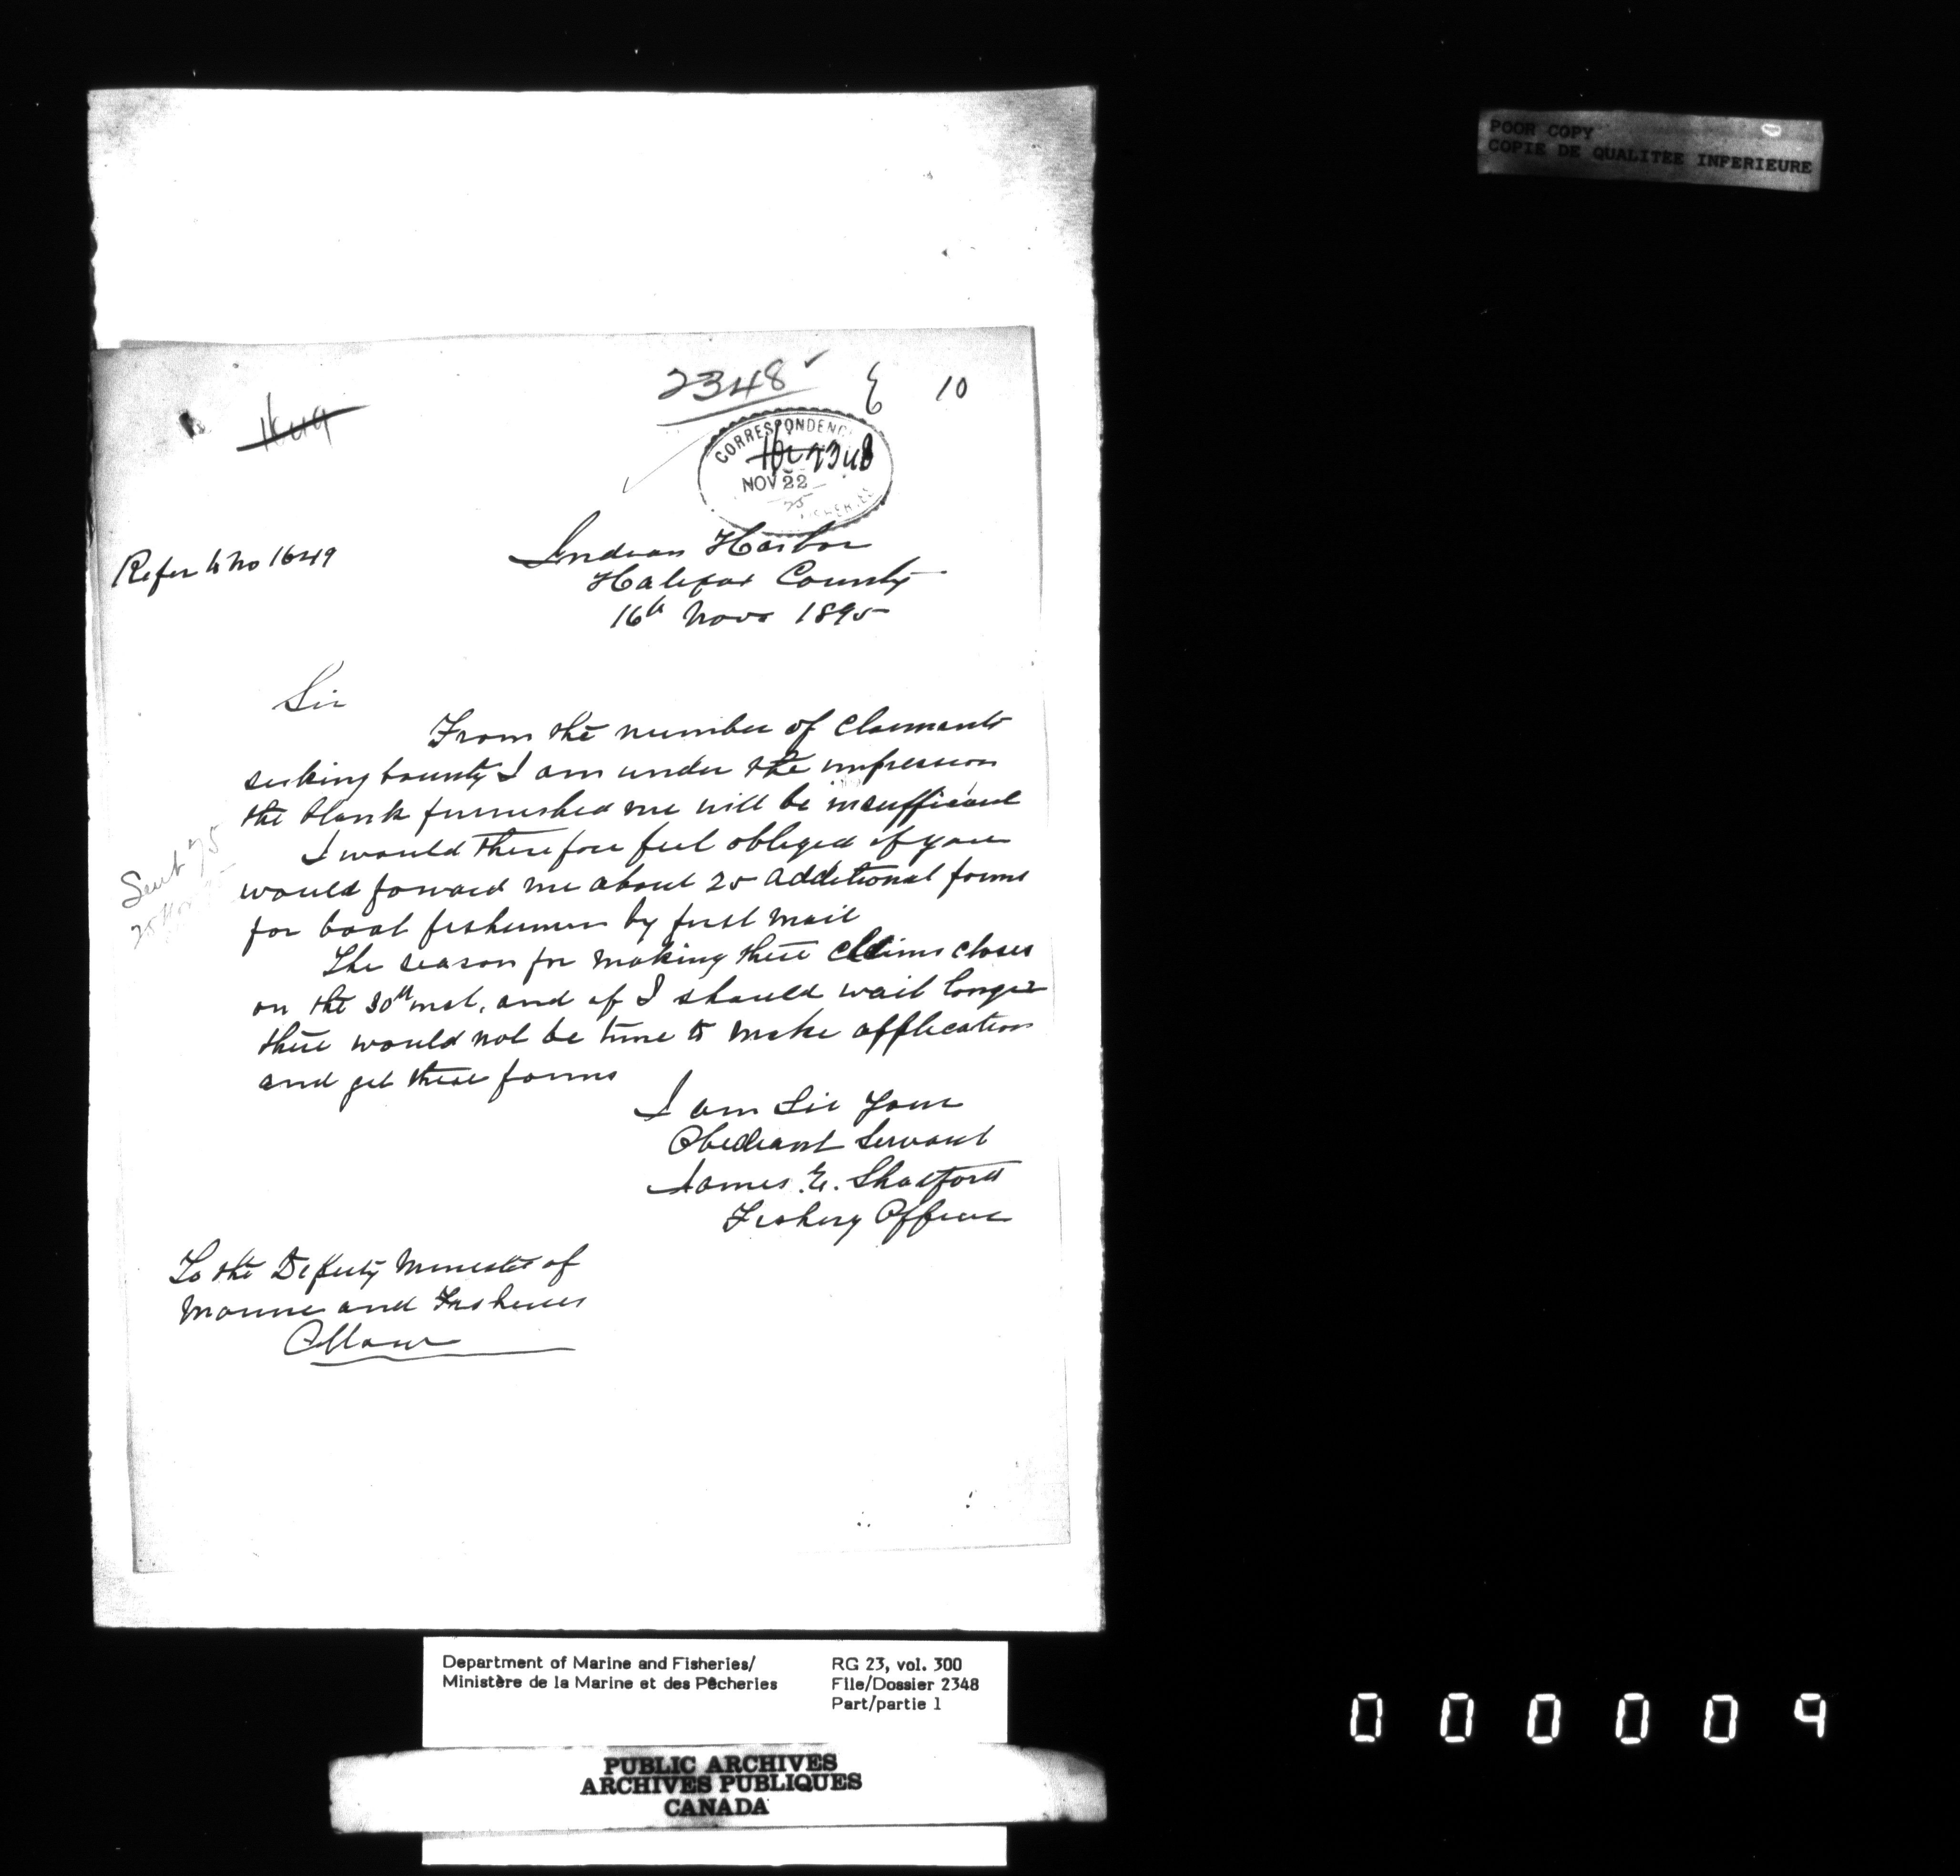 POOR COPY
COPIE DE QUALITÉE INFERIEURE
2348 10
1649
CORRESPONDENCE
2348
NOV 22
95
FISHERIES
Refer to No 1649
Indian Harbor
Halifax County
16th Nov 1895
Sir
From the number of Claimants
seeking bounty I am under the impression
the blank furnished me will be insufficient
I would therefore feel obliged if you
would forward me about 25 additional forms
for boat fishermen by first mail
The season for making these Claims closes
on the 30th inst. and if I should wait longer
there would not be time to make application
and get these forms
Sent 75
25 Nov
I am Sir Your
Obediant Servant
James E. Shatford
Fishery Officer
To the Deputy Minister of
Marine and Fisheries
Ottawa
Department of Marine and Fisheries/
Ministère de la Marine et des Pêcheries
RG 23, vol. 300
File/Dossier 2348
Part/partie 1
PUBLIC ARCHIVES
ARCHIVES PUBLIQUES
CANADA
000009